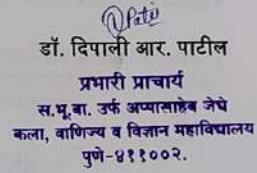 डॉ. दिपाली आर. पाटील
प्रभारी प्राचार्य
स.भू.बा. उर्फ अप्पासाहेब जेधे
कला, वाणिज्य व विज्ञान महाविद्यालय
पुणे-४११००२.